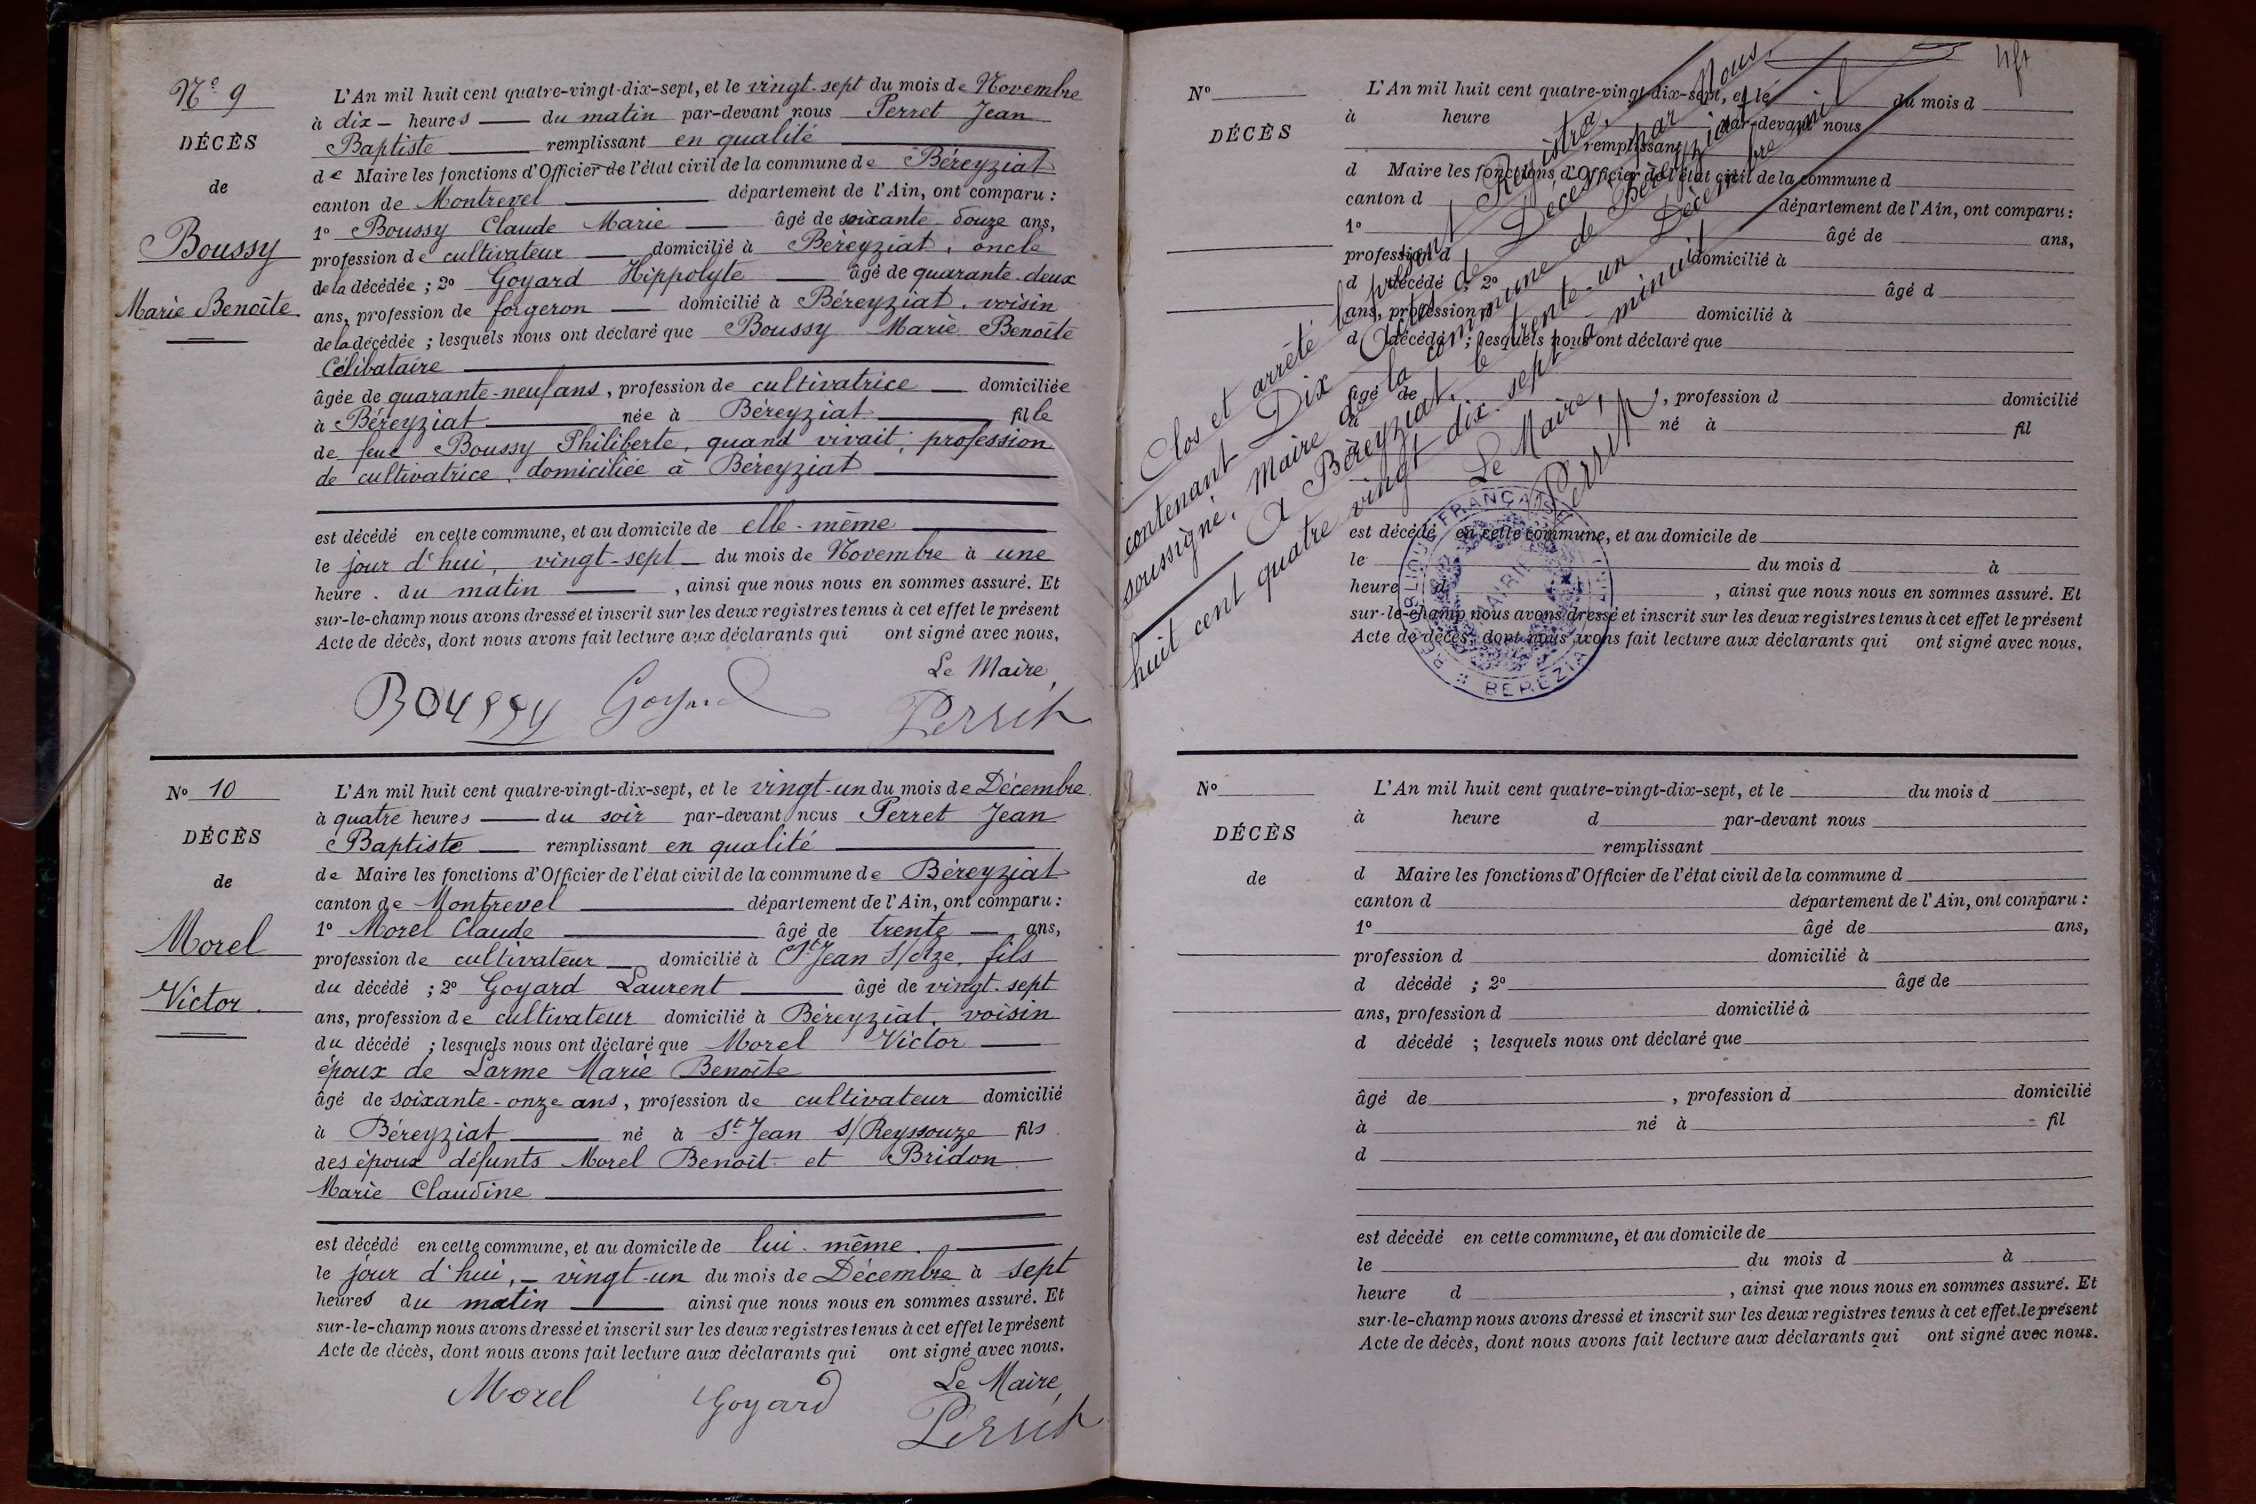 Nº 9
DÉCÈS
de
Boussy
Marie Benoîte
L'An mil huit cent quatre-vingt-dix-sept, et le vingt-sept du mois de Novembre
à dix — heures — du matin par-devant nous Perret Jean
Baptiste — remplissant en qualité —
de Maire les fonctions d'Officier de l'état civil de la commune de Béreyziat
canton de Montrevel — département de l'Ain, ont comparu :
1º Boussy Claude Marie — âgé de soixante-douze ans,
profession de cultivateur — domicilié à Béreyziat, oncle
de la décédée ; 2º Goyard Hippolyte — âgé de quarante-deux
ans, profession de forgeron — domicilié à Béreyziat, voisin
de la décédée ; lesquels nous ont déclaré que Boussy Marie Benoîte
Célibataire —
âgée de quarante-neuf ans, profession de cultivatrice — domiciliée
à Béreyziat — née à Béreyziat — fille
de feue Boussy Philiberte, quand vivait, profession
de cultivatrice, domiciliée à Béreyziat —
est décédé en cette commune, et au domicile de elle-même —
le jour d'hui, vingt-sept — du mois de Novembre à une
heure. du matin —, ainsi que nous nous en sommes assuré. Et
sur-le-champ nous avons dressé et inscrit sur les deux registres tenus à cet effet le présent
Acte de décès, dont nous avons fait lecture aux déclarants qui ont signé avec nous.
Le Maire,
Boussy Goyard Perret
Nº 10
DÉCÈS
de
Morel
Victor.
L'An mil huit cent quatre-vingt-dix-sept, et le vingt-un du mois de Décembre
à quatre heures — du soir par-devant nous Perret Jean
Baptiste — remplissant en qualité —
de Maire les fonctions d'Officier de l'état civil de la commune de Béreyziat
canton de Montrevel — département de l'Ain, ont comparu :
1º Morel Claude — âgé de trente — ans,
profession de cultivateur — domicilié à St Jean s/ fils
du décédé ; 2º Goyard Laurent — âgé de vingt-sept
ans, profession de cultivateur domicilié à Béreyziat, voisin
du décédé ; lesquels nous ont déclaré que Morel Victor —
époux de Larme Marie Benoîte —
âgé de soixante-onze ans, profession de cultivateur domicilié
à Béreyziat — né à St Jean s/ Reyssouze fils
des époux défunts Morel Benoît et Bridon
Marie Claudine —
est décédé en cette commune, et au domicile de lui-même. —
le jour d'hui, — vingt-un du mois de Décembre à sept
heures du matin — ainsi que nous nous en sommes assuré. Et
sur-le-champ nous avons dressé et inscrit sur les deux registres tenus à cet effet le présent
Acte de décès, dont nous avons fait lecture aux déclarants qui ont signé avec nous.
Le Maire,
Morel Goyard Perret
Nº
DÉCÈS
L'An mil huit cent quatre-vingt-dix-sept, et le du mois d
à heure par-devant nous
remplissant
d Maire les fonctions d'Officier de l'état civil de la commune d
canton d département de l'Ain, ont comparu :
1º âgé de ans,
profession d domicilié à
d décédé ; 2º âgé d
ans, profession d domicilié à
d décédé ; lesquels nous ont déclaré que
âgé de , profession d domicilié
à né à fil
est décédé en cette commune, et au domicile de
le du mois d à
heure d , ainsi que nous nous en sommes assuré. Et
sur-le-champ nous avons dressé et inscrit sur les deux registres tenus à cet effet le présent
Acte de décès, dont nous avons fait lecture aux déclarants qui ont signé avec nous.
Clos et arrêté le présent Registre,
contenant Dix Actes de Décès, par Nous
soussigné, Maire de la commune de Béreyziat
— A Béreyziat, le trente-un Décembre mil
huit cent quatre vingt dix-sept à minuit
Le Maire,
Perret
RÉPUBLIQUE FRANÇAISE
MAIRIE
BEREZIAT
Nº
DÉCÈS
de
L'An mil huit cent quatre-vingt-dix-sept, et le du mois d
à heure d par-devant nous
remplissant
d Maire les fonctions d'Officier de l'état civil de la commune d
canton d département de l'Ain, ont comparu :
1º âgé de ans,
profession d domicilié à
d décédé ; 2º âgé de
ans, profession d domicilié à
d décédé ; lesquels nous ont déclaré que
âgé de , profession d domicilié
à né à fil
d
est décédé en cette commune, et au domicile de
le du mois d à
heure d , ainsi que nous nous en sommes assuré. Et
sur-le-champ nous avons dressé et inscrit sur les deux registres tenus à cet effet le présent
Acte de décès, dont nous avons fait lecture aux déclarants qui ont signé avec nous.